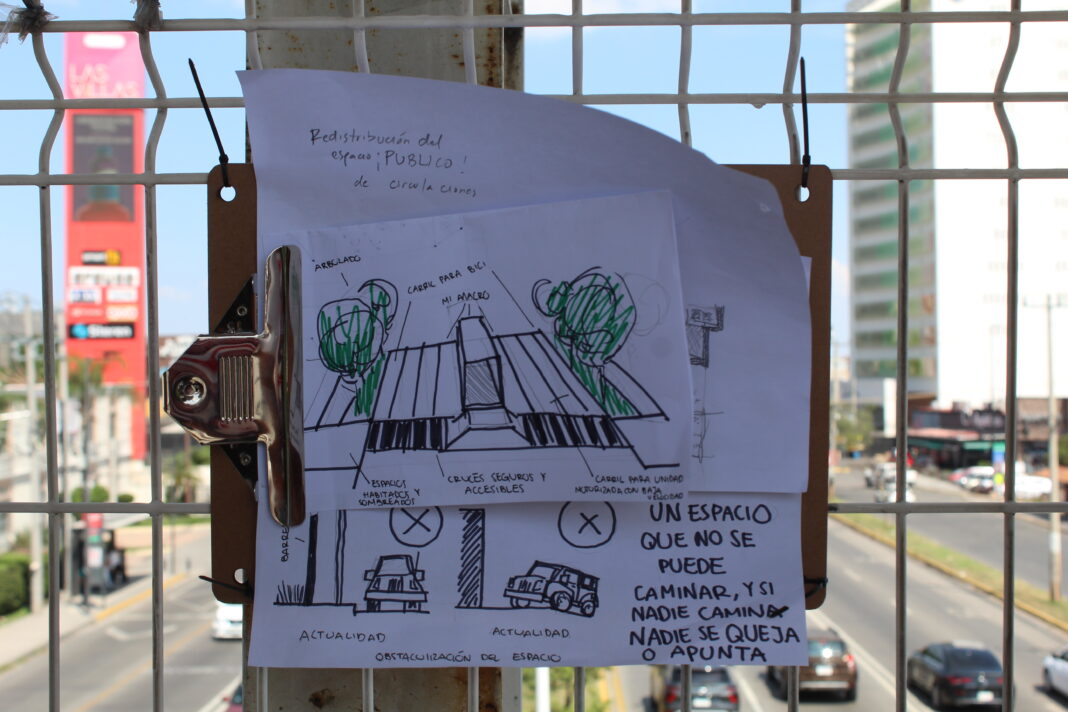 LAS
VILLAS
Redistribución del
espacio ¡PUBLICO!
de circulaciones
ARBOLADO
CARRIL PARA BICI
MI MACRO
ESPACIOS
HABITADOS Y
SOMBREADOS
CRUCES SEGUROS Y
ACCESIBLES
CARRIL PARA UNIDAD
MOTORIZADA CON BAJA
VELOCIDAD
BARRE
ACTUALIDAD
ACTUALIDAD.
OBSTACULIZACIÓN DEL ESPACIO
UN ESPACIO
QUE NO SE
PUEDE
CAMINAR, Y SI
NADIE CAMINA
NADIE SE QUEJA
O APUNTA